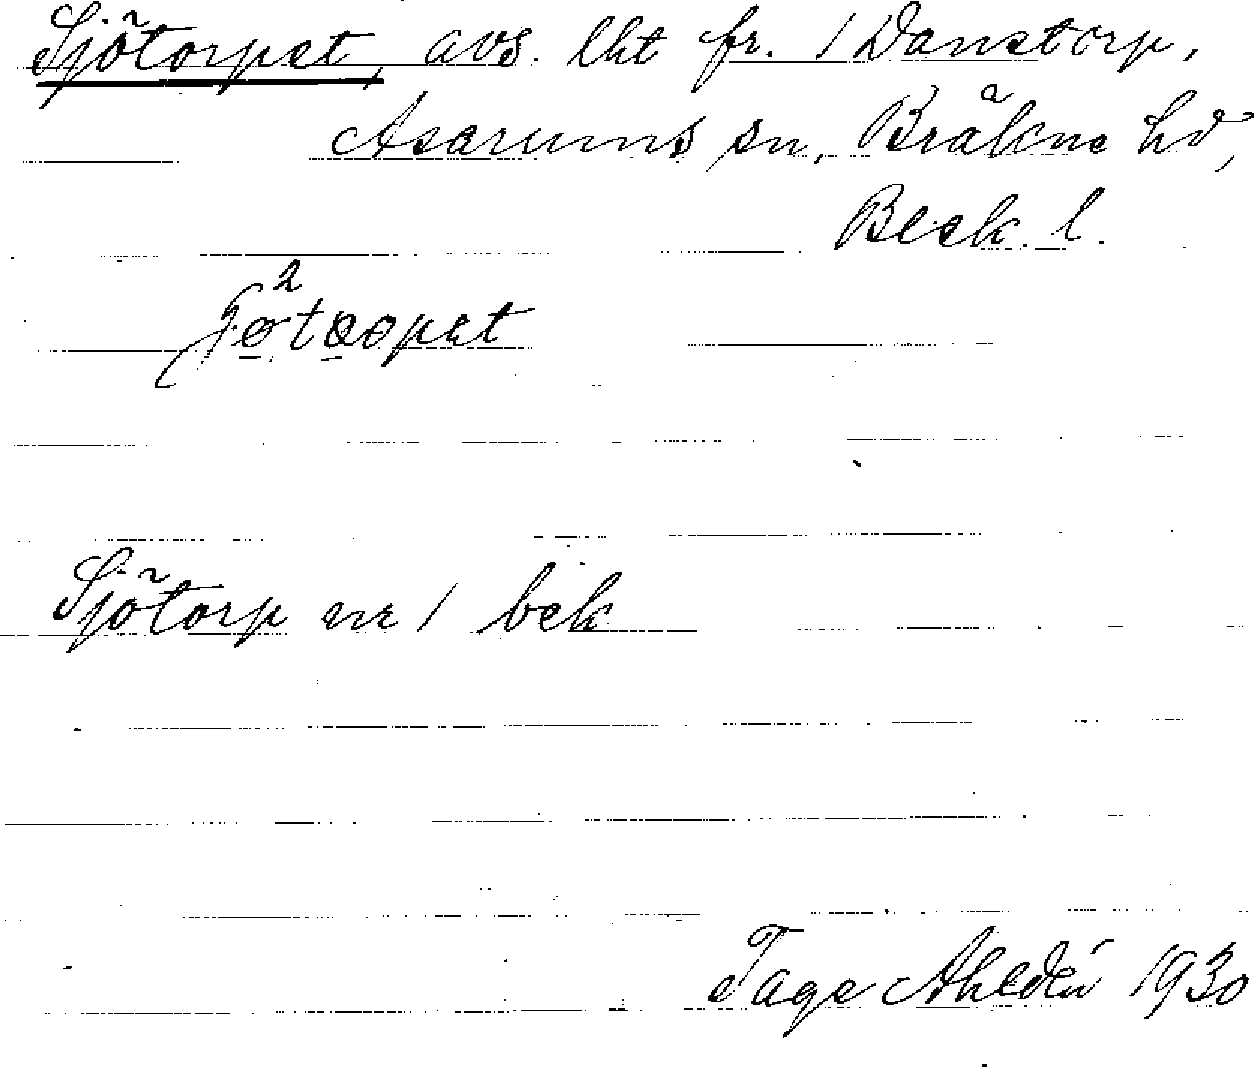 Sjötorpet, avs. lht fr. 1 Danstorp,
Asarums sn, Bräkne hd,
Blek. l.
Sjötorp nr 1 bek
Tage Ahldén 1930